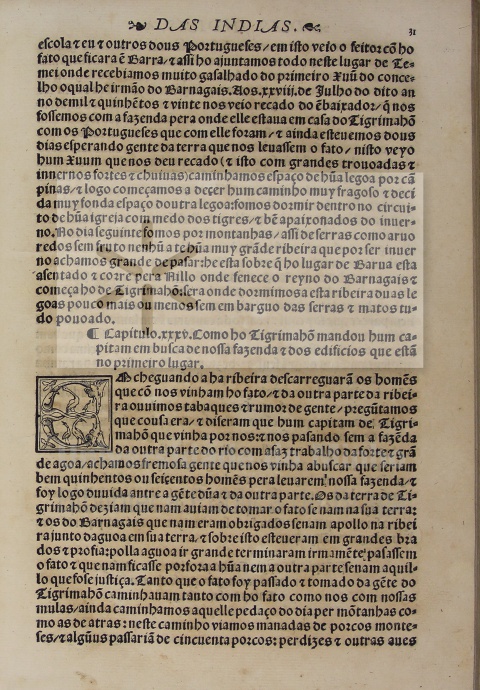 DAS INDIAS.
31
escola ⁊ eu ⁊ outros dous Portugueses/em isto veio o feitor cõ ho
fato que ficara ẽ Barra/⁊ assi ho ajuntamos todo neste lugar de Te-
mei onde recebiamos muito gasalhado do primeiro Xuũ do conce-
lho o qual he irmão do Barnagais. Aos.xxviii.de Julho do dito an
no de mil ⁊ quinhẽtos ⁊ vinte nos veio recado do ẽbaixador/q̃ nos
fossemos com a fazenda pera onde elle estaua em casa do Tigrimahõ
com os Portugueses que com elle foram/⁊ ainda esteuemos dous
dias esperando gente da terra que nos leuassem o fato/nisto veyo
hum Xuum que nos deu recado (⁊ isto com grandes trouoadas ⁊
inuernos fortes ⁊ chuiuas) caminhamos espaço de hũa legoa por cã
pinas/⁊ logo começamos a deçer hum caminho muy fragoso ⁊ deci
da muy fonda espaço doutra legoa: fomos dormir dentro no circui-
to de hũa igreja com medo dos tigres/⁊ bẽ apaixonados do inuer-
no. No dia seguinte fomos por montanhas/assi de serras como aruo
redos sem fruto nenhũ a te hũa muy grãde ribeira que por ser inuer
no achamos grande de pasar: he esta sobre q̃ ho lugar de Barua esta
asentado ⁊ corre pera Nillo onde fenece o reyno do Barnagais ⁊
começa ho de Tigrimahõ: sera onde dormimos a esta ribeira duas le
goas pouco mais ou menos sem embarguo das serras ⁊ matos tu-
do pouoado.
¶ Capitulo.xxxv. Como ho Tigrimahõ mandou hum ca-
pitam em busca de nossa fazenda ⁊ dos edificios que estã
no primeiro lugar.
EM chegando a ha ribeira descarreguarã os homẽs
que cõ nos vinham ho fato/⁊ da outra parte da ribei-
ra ouuimos tabaques ⁊ rumor de gente/pregũtamos
que cousa era/⁊ diseram que hum capitam de Tigri-
mahõ que vinha por nos: ⁊ nos pasando sem a fazẽda
da outra parte do rio com afaz trabalho da forte ⁊ grã
de agoa/achamos fremosa gente que nos vinha abuscar que seriam
bem quinhentos ou seiçentos homẽs pera leuarem nossa fazenda/⁊
foy logo duuida antre a gẽte dũa ⁊ da outra parte. Os da terra de Ti-
grimahõ deziam que nam auiam de tomar o fato se nam na sua terra:
⁊ os do Barnagais que nam eram obrigados senam apollo na ribei
ra junto da aguoa em sua terra/⁊ sobre isto esteueram em grandes bra
dos ⁊ profia: polla aguoa ir grande terminaram irmãmẽte pasassem
o fato ⁊ que nam ficasse por fora a hũa nem a outra parte senam aquil-
lo que fose justiça. Tanto que o fato foy passado ⁊ tomado da gẽte do
Tigrimahõ caminhauam tanto com ho fato como nos com nossas
mulas/ainda caminhamos aquelle pedaço do dia per mõtanhas co-
mo as de atras: neste caminho viamos manadas de porcos monte-
ses/⁊ algũus passariã de cincuenta porcos: perdizes ⁊ outras aues